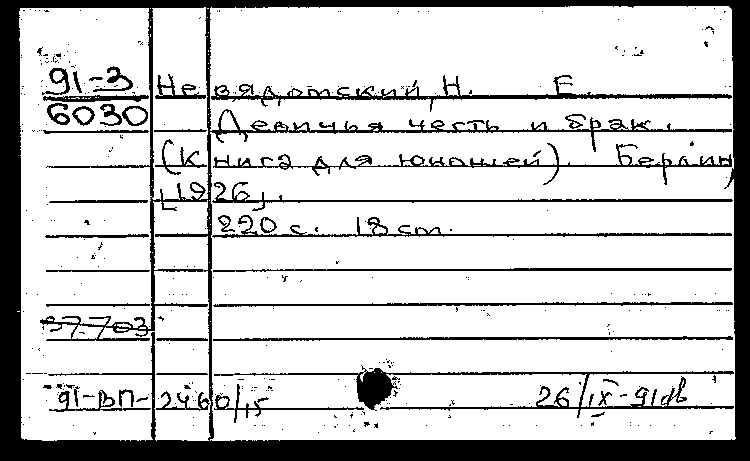 91-3
6030
Невядомский, Н. Е.
Девичья честь и брак.
(Книга для юношей). Берлин,
[1926].
220 с. 18 cm.
37.703
91-ВП-2460/15
26/IX-91